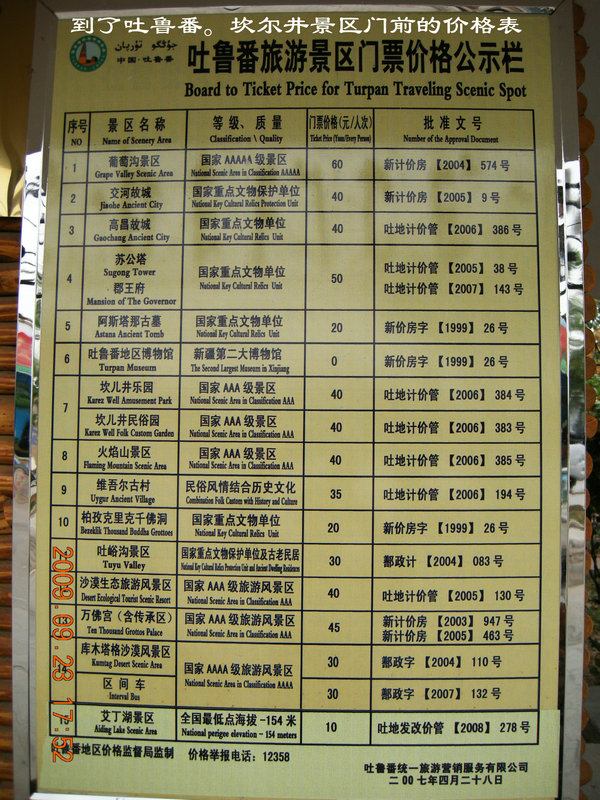 到了吐鲁番。坎尔井景区门前的价格表
中国·吐鲁番
吐鲁番旅游景区门票价格公示栏
Board to Ticket Price for Turpan Traveling Scenic Spot
序号 景区名称 等级、质量 门票价格(元/人次) 批准文号
NO Name of Scenery Area Classification \ Quality Ticket Price (Yuan/Every Person) Number of the Approval Document
1 葡萄沟景区 国家AAAAA级景区 60 新计价房【2004】574号
Grape Valley Scenic Area National Scenic Area in Classification AAAAA
2 交河故城 国家重点文物保护单位 40 新计价房【2005】9号
Jiaohe Ancient City National Key Cultural Relics Protection Unit
3 高昌故城 国家重点文物单位 40 吐地计价管【2006】386号
Gaochang Ancient City National Key Cultural Relics Unit
4 苏公塔 国家重点文物单位 50 吐地计价管【2005】38号
Sugong Tower National Key Cultural Relics Unit
郡王府 吐地计价管【2007】143号
Mansion of The Governor
5 阿斯塔那古墓 国家重点文物单位 20 新价房字【1999】26号
Astana Ancient Tomb National Key Cultural Relics Unit
6 吐鲁番地区博物馆 新疆第二大博物馆 0 新价房字【1999】26号
Turpan Museum The Second Largest Museum in Xinjiang
7 坎儿井乐园 国家AAA级景区 40 吐地计价管【2006】384号
Karez Well Amusement Park National Scenic Area in Classification AAA
坎儿井民俗园 国家AAA级景区 40 吐地计价管【2006】383号
Karez Well Folk Custom Garden National Scenic Area in Classification AAA
8 火焰山景区 国家AAA级景区 40 吐地计价管【2006】385号
Flaming Mountain Scenic Area National Scenic Area in Classification AAA
9 维吾尔古村 民俗风情结合历史文化 35 吐地计价管【2006】194号
Uygur Ancient Village Combination Folk Custom with History and Culture
10 柏孜克里克千佛洞 国家重点文物单位 20 新价房字【1999】26号
Bezeklik Thousand Buddha Grottoes National Key Cultural Relics Unit
吐峪沟景区 国家重点文物保护单位及古老民居 30 鄯政计【2004】083号
Tuyu Valley National Key Cultural Relics Protection Unit and Ancient Dwelling Residences
沙漠生态旅游风景区 国家AAA级旅游风景区 40 吐地计价管【2005】130号
Desert Ecological Tourist Resort National Scenic Area in Classification AAA
13 万佛宫（含传承区） 国家AAA级旅游风景区 45 新计价房【2003】947号
Ten Thousand Grottos Palace National Scenic Area in Classification AAA 新计价房【2005】463号
14 库木塔格沙漠风景区 国家AAAA级旅游风景区 30 鄯政字【2004】110号
Kumtag Desert Scenic Area National Scenic Area in Classification AAAA
区间车 30 鄯政字【2007】132号
Interval Bus
艾丁湖景区 全国最低点海拔-154米 10 吐地发改价管【2008】278号
Aiding Lake Scenic Area National perigee elevation - 154 meters
吐鲁番地区价格监督局监制 价格举报电话：12358
吐鲁番统一旅游营销服务有限公司
二00七年四月二十八日
2009.09.23 17:52